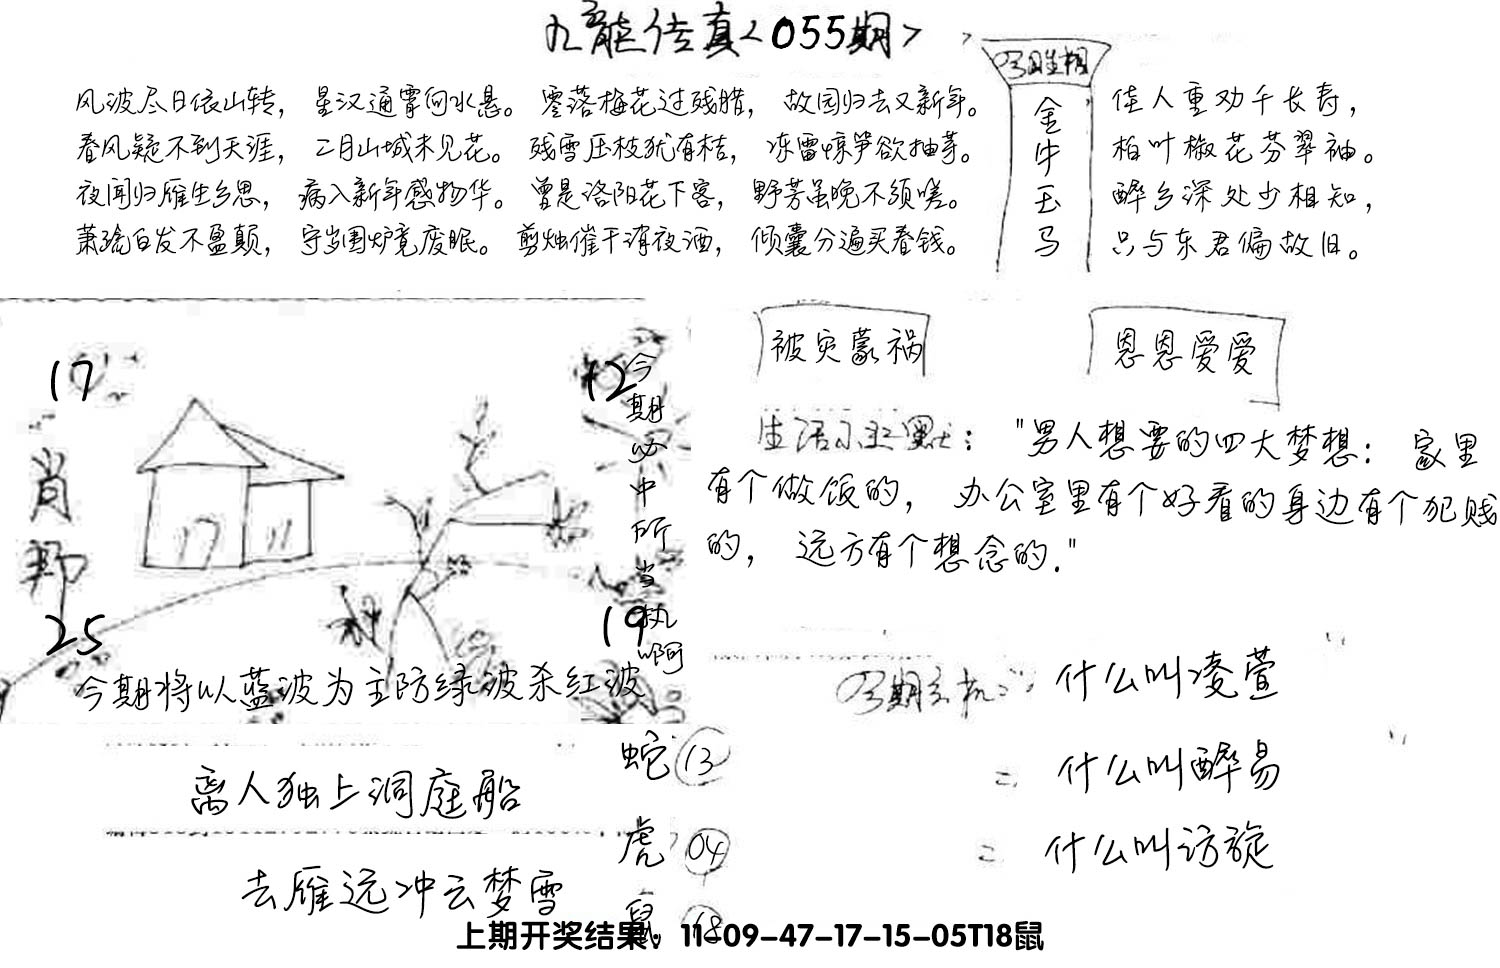 九龍传真<055期>
风波尽日依山转, 星汉通霄向水悬。 零落梅花过残腊, 故园归去又新年。
春风疑不到天涯, 二月山城未见花。 残雪压枝犹有桔, 冻雷惊笋欲抽芽。
夜闻归雁生乡思, 病入新年感物华。 曾是洛阳花下客, 野芳虽晚不须嗟。
萧疏白发不盈颠, 守岁围炉竟废眠。 剪烛催干消夜酒, 倾囊分遍买春钱。
金牛玉马
佳人重劝千长寿,
柏叶椒花芬翠袖。
醉乡深处少相知,
只与东君偏故旧。
被灾蒙祸
恩恩爱爱
17
12
肖
25
19
今期必中所当执啊
今期将以蓝波为主防绿波杀红波
生活小幽默: "男人想要的四大梦想: 家里
有个做饭的, 办公室里有个好看的身边有个犯贱
的, 远方有个想念的."
什么叫凌萱
二 什么叫醉易
二 什么叫访旋
离人独上洞庭船
去雁远冲云梦雪
蛇 13
虎 04
鼠 18
上期开奖结果: 11-09-47-17-15-05T18鼠